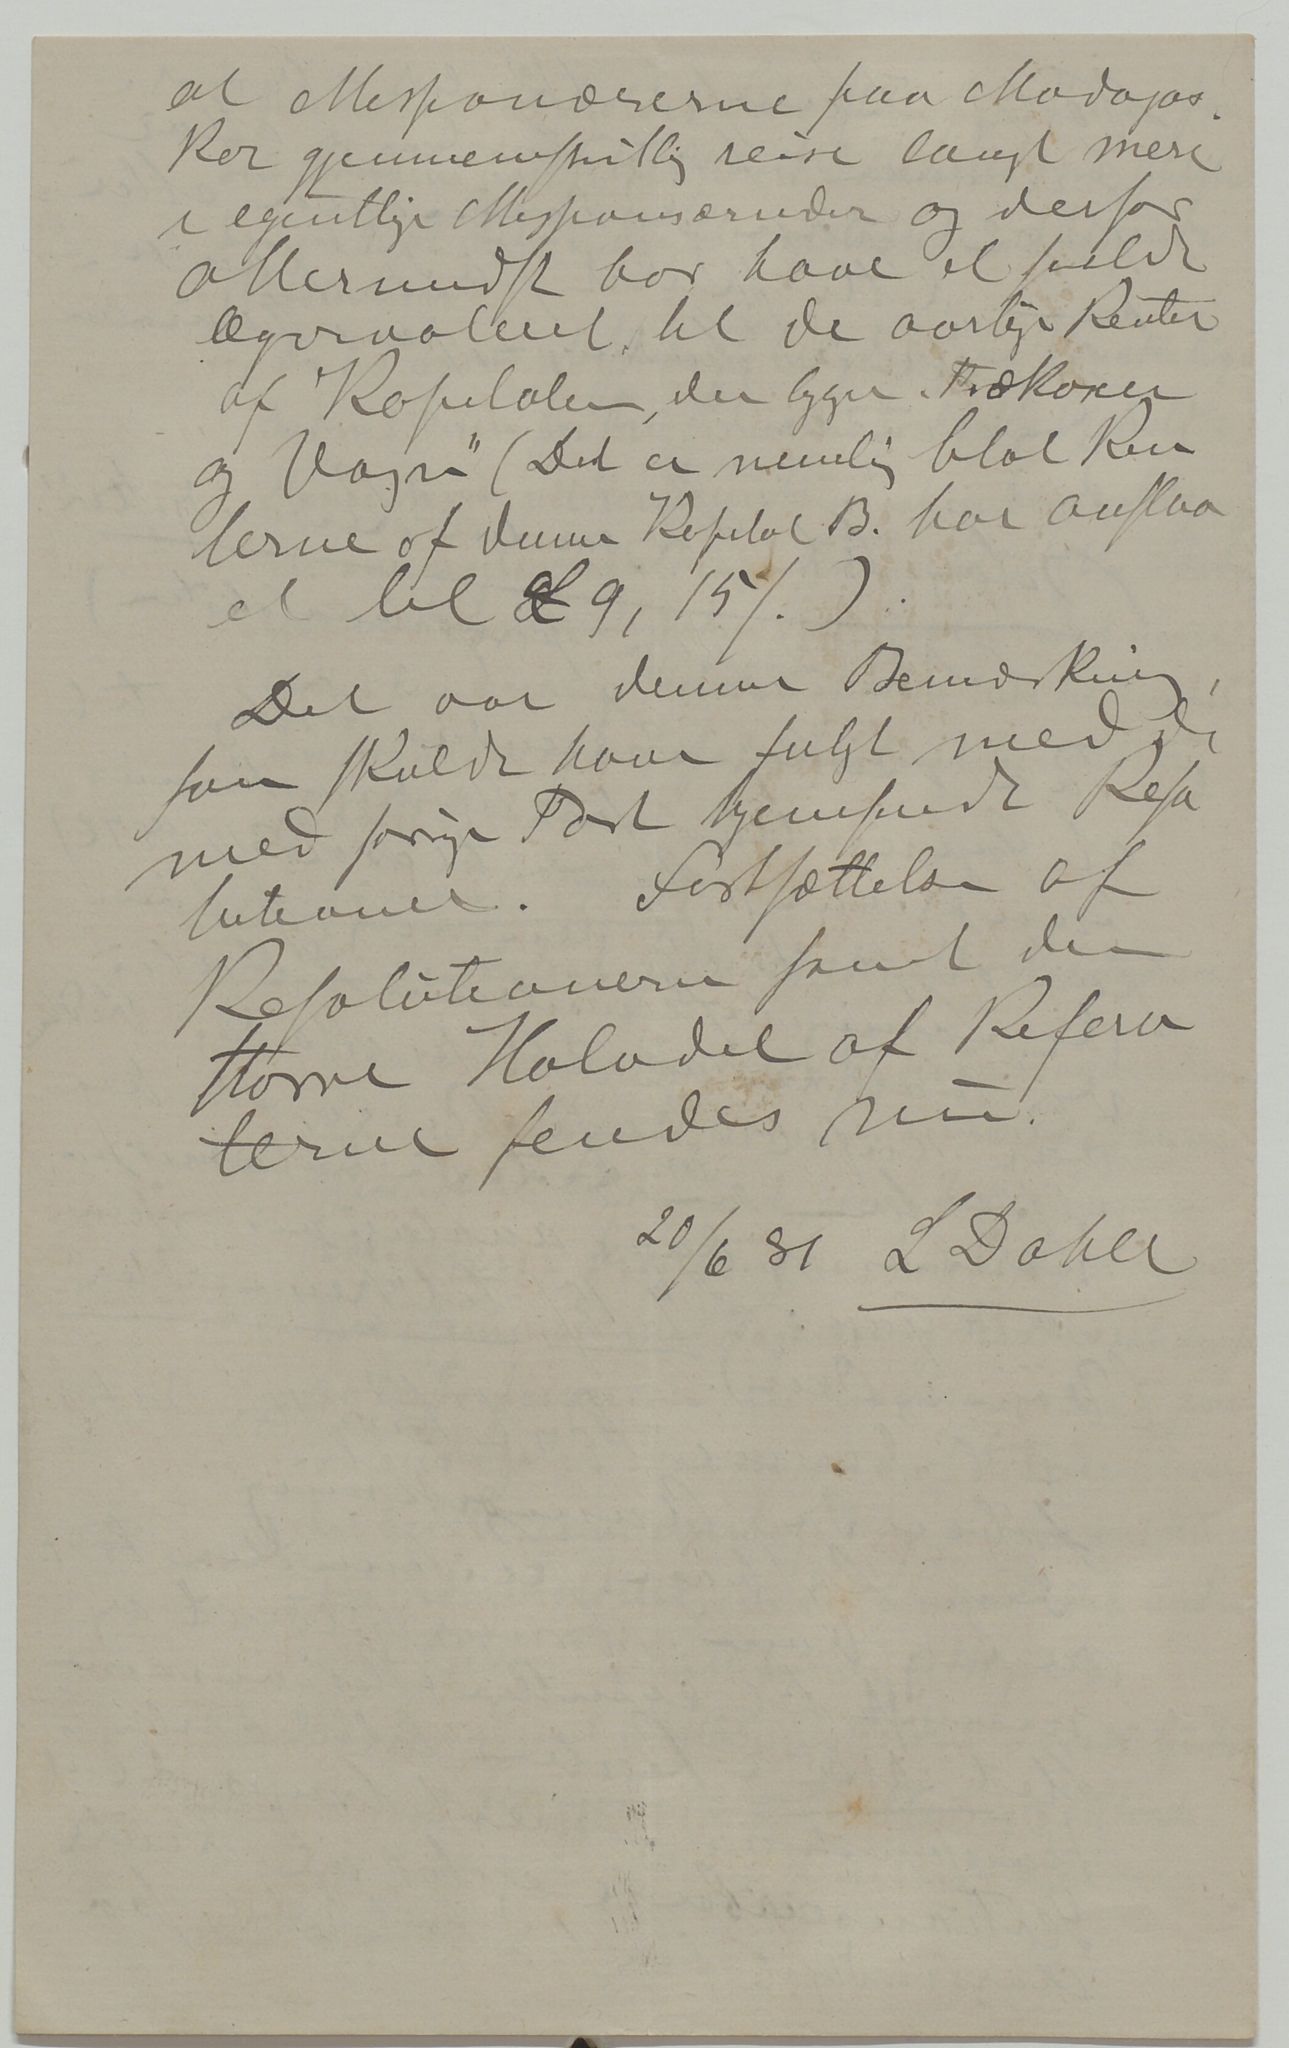 at Missionærerne paa Madagas-
kar gjennemsnitlig reise langt mere
i egentlige Missionsærinder og derfor
allermindst bør have et fuldt
Æqvivalent til de aarlige Renter
af Kapitalen, der ligger i Trækoxer
og Vogn" (Det er nemlig blot Ren
terne af denne Kapital B. har anslaa
et til £ 9, 15/.).
Det var denne Bemærkning,
som skulde have fulgt med de
med forrige Post hjemsendte Reso
lutioner. Fortsættelse af
Resolutionerne samt den
større Halvdel af Refera
terne sendes nu.
20/6 81 L Dahle